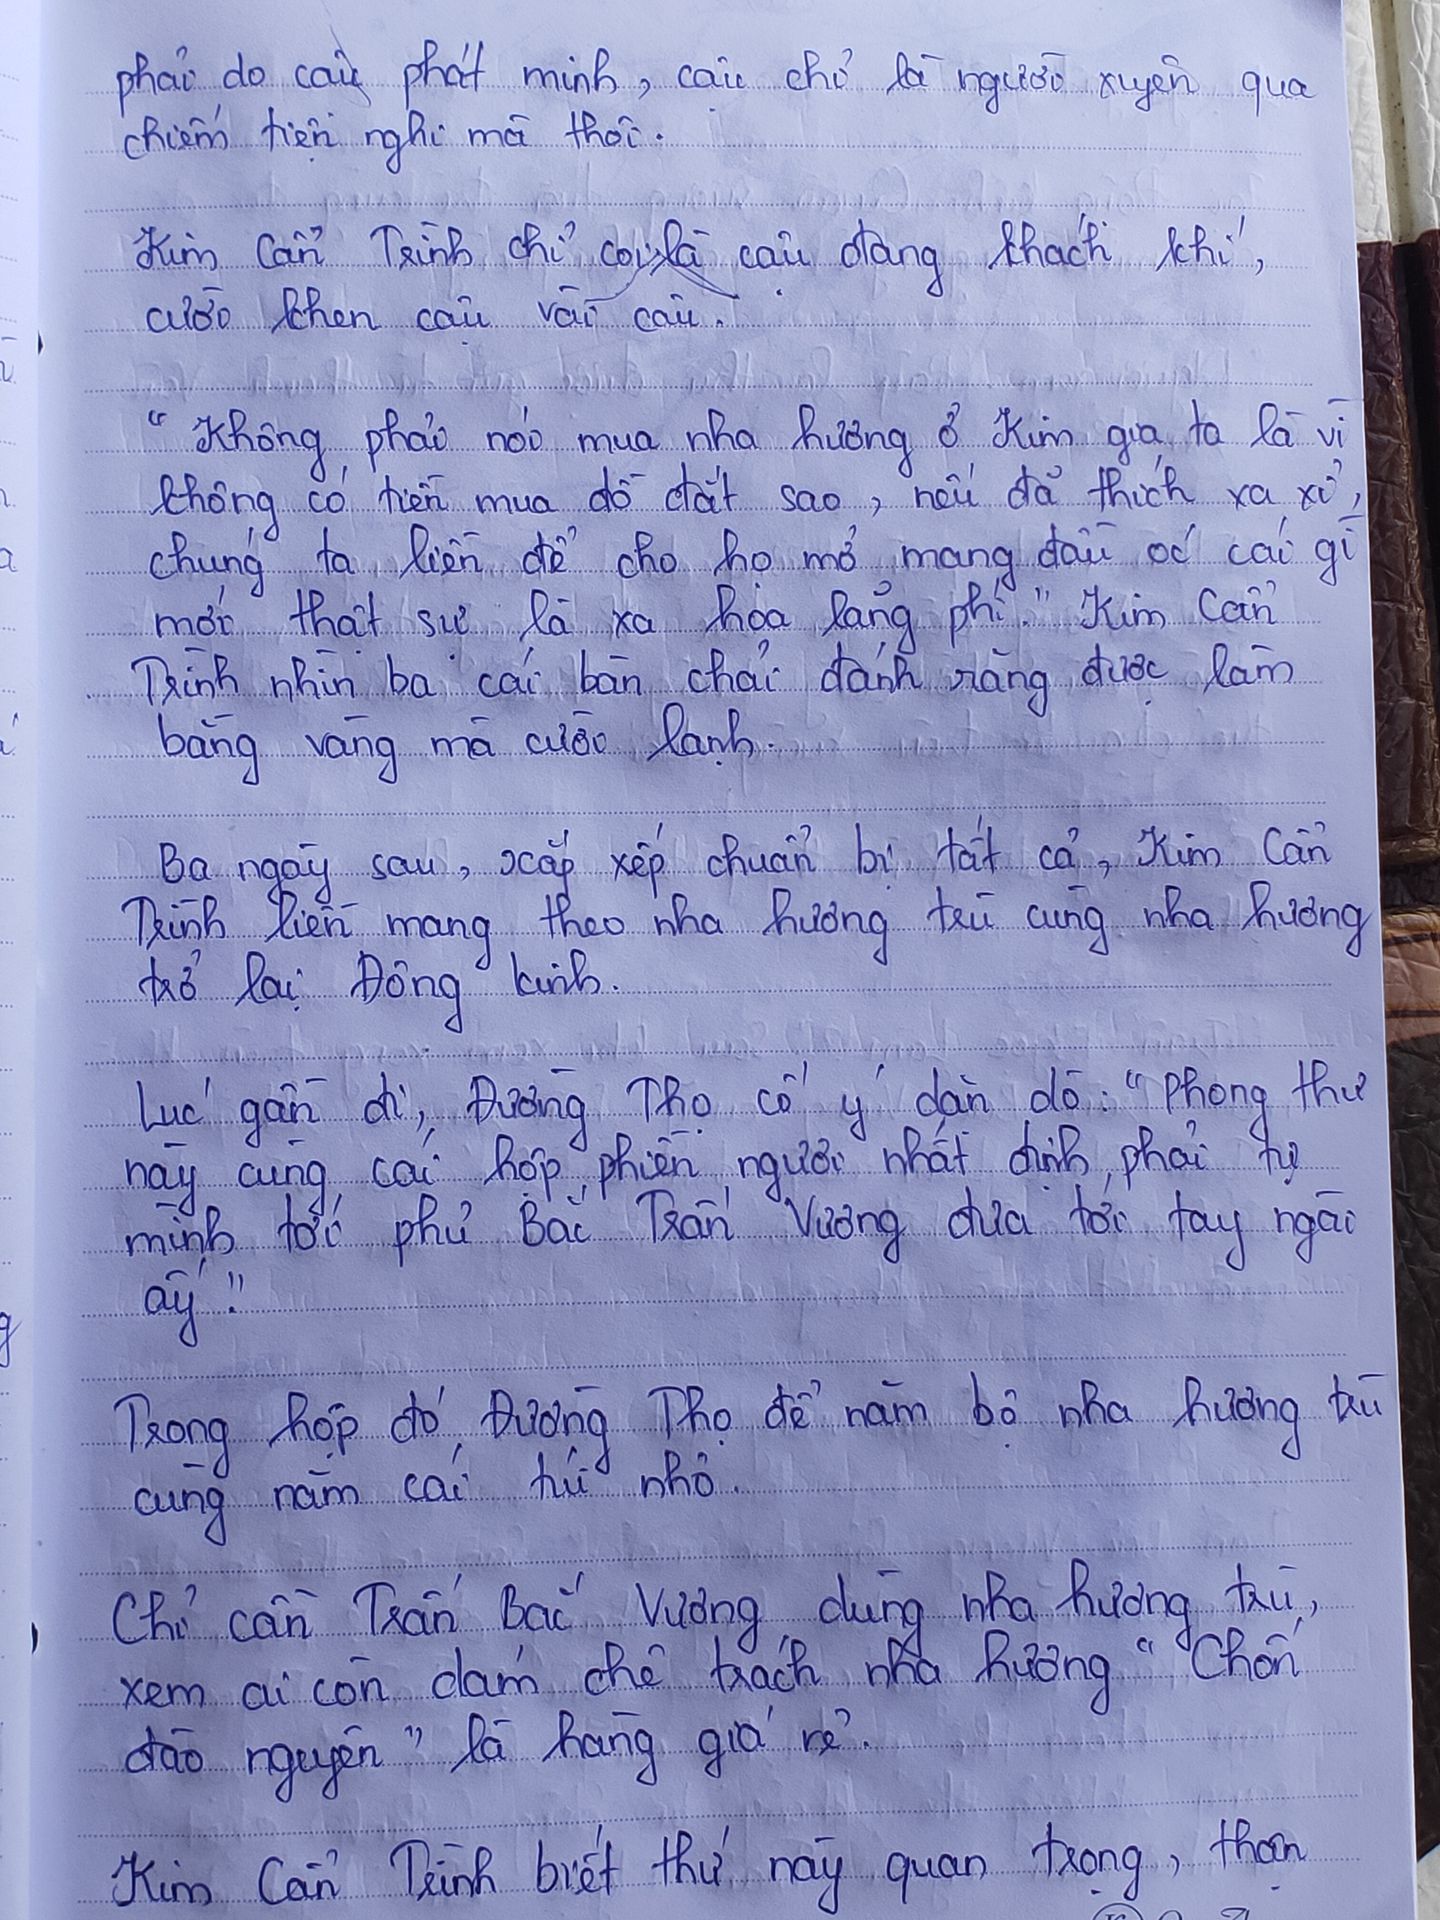 phải do cậu phát minh, cậu chỉ là người xuyên qua
chiếm tiện nghi mà thôi.
Kim Cẩn Trình chỉ coi là cậu đang khách khí,
cười khen cậu vài câu.
"Không phải nói mua nha hương ở Kim gia ta là vì
không có tiền mua đồ đắt sao, nếu đã thích xa xỉ,
chúng ta liền để cho họ mở mang đầu óc cái gì
mới thật sự là xa hoa lãng phí." Kim Cẩn
Trình nhìn ba cái bàn chải đánh răng được làm
bằng vàng mà cười lạnh.
Ba ngày sau, xắp xếp chuẩn bị tất cả, Kim Cẩn
Trình liền mang theo nha hương trù cùng nha hương
trở lại Đông kinh.
Lúc gần đi, Đường Thọ cố ý dặn dò: "Phong thư
này cùng cái hộp phiền người nhất định phải tự
mình tới phủ Bắc Trấn Vương đưa tới tay ngài
ấy."
Trong hộp đó, Đường Thọ để năm bộ nha hương trù
cùng năm cái túi nhỏ.
Chỉ cần Trấn Bắc Vương dùng nha hương trù,
xem ai còn dám chê trách nha hương "Chốn
đào nguyên" là hàng giá rẻ.
Kim Cẩn Trình biết thứ này quan trọng, thận